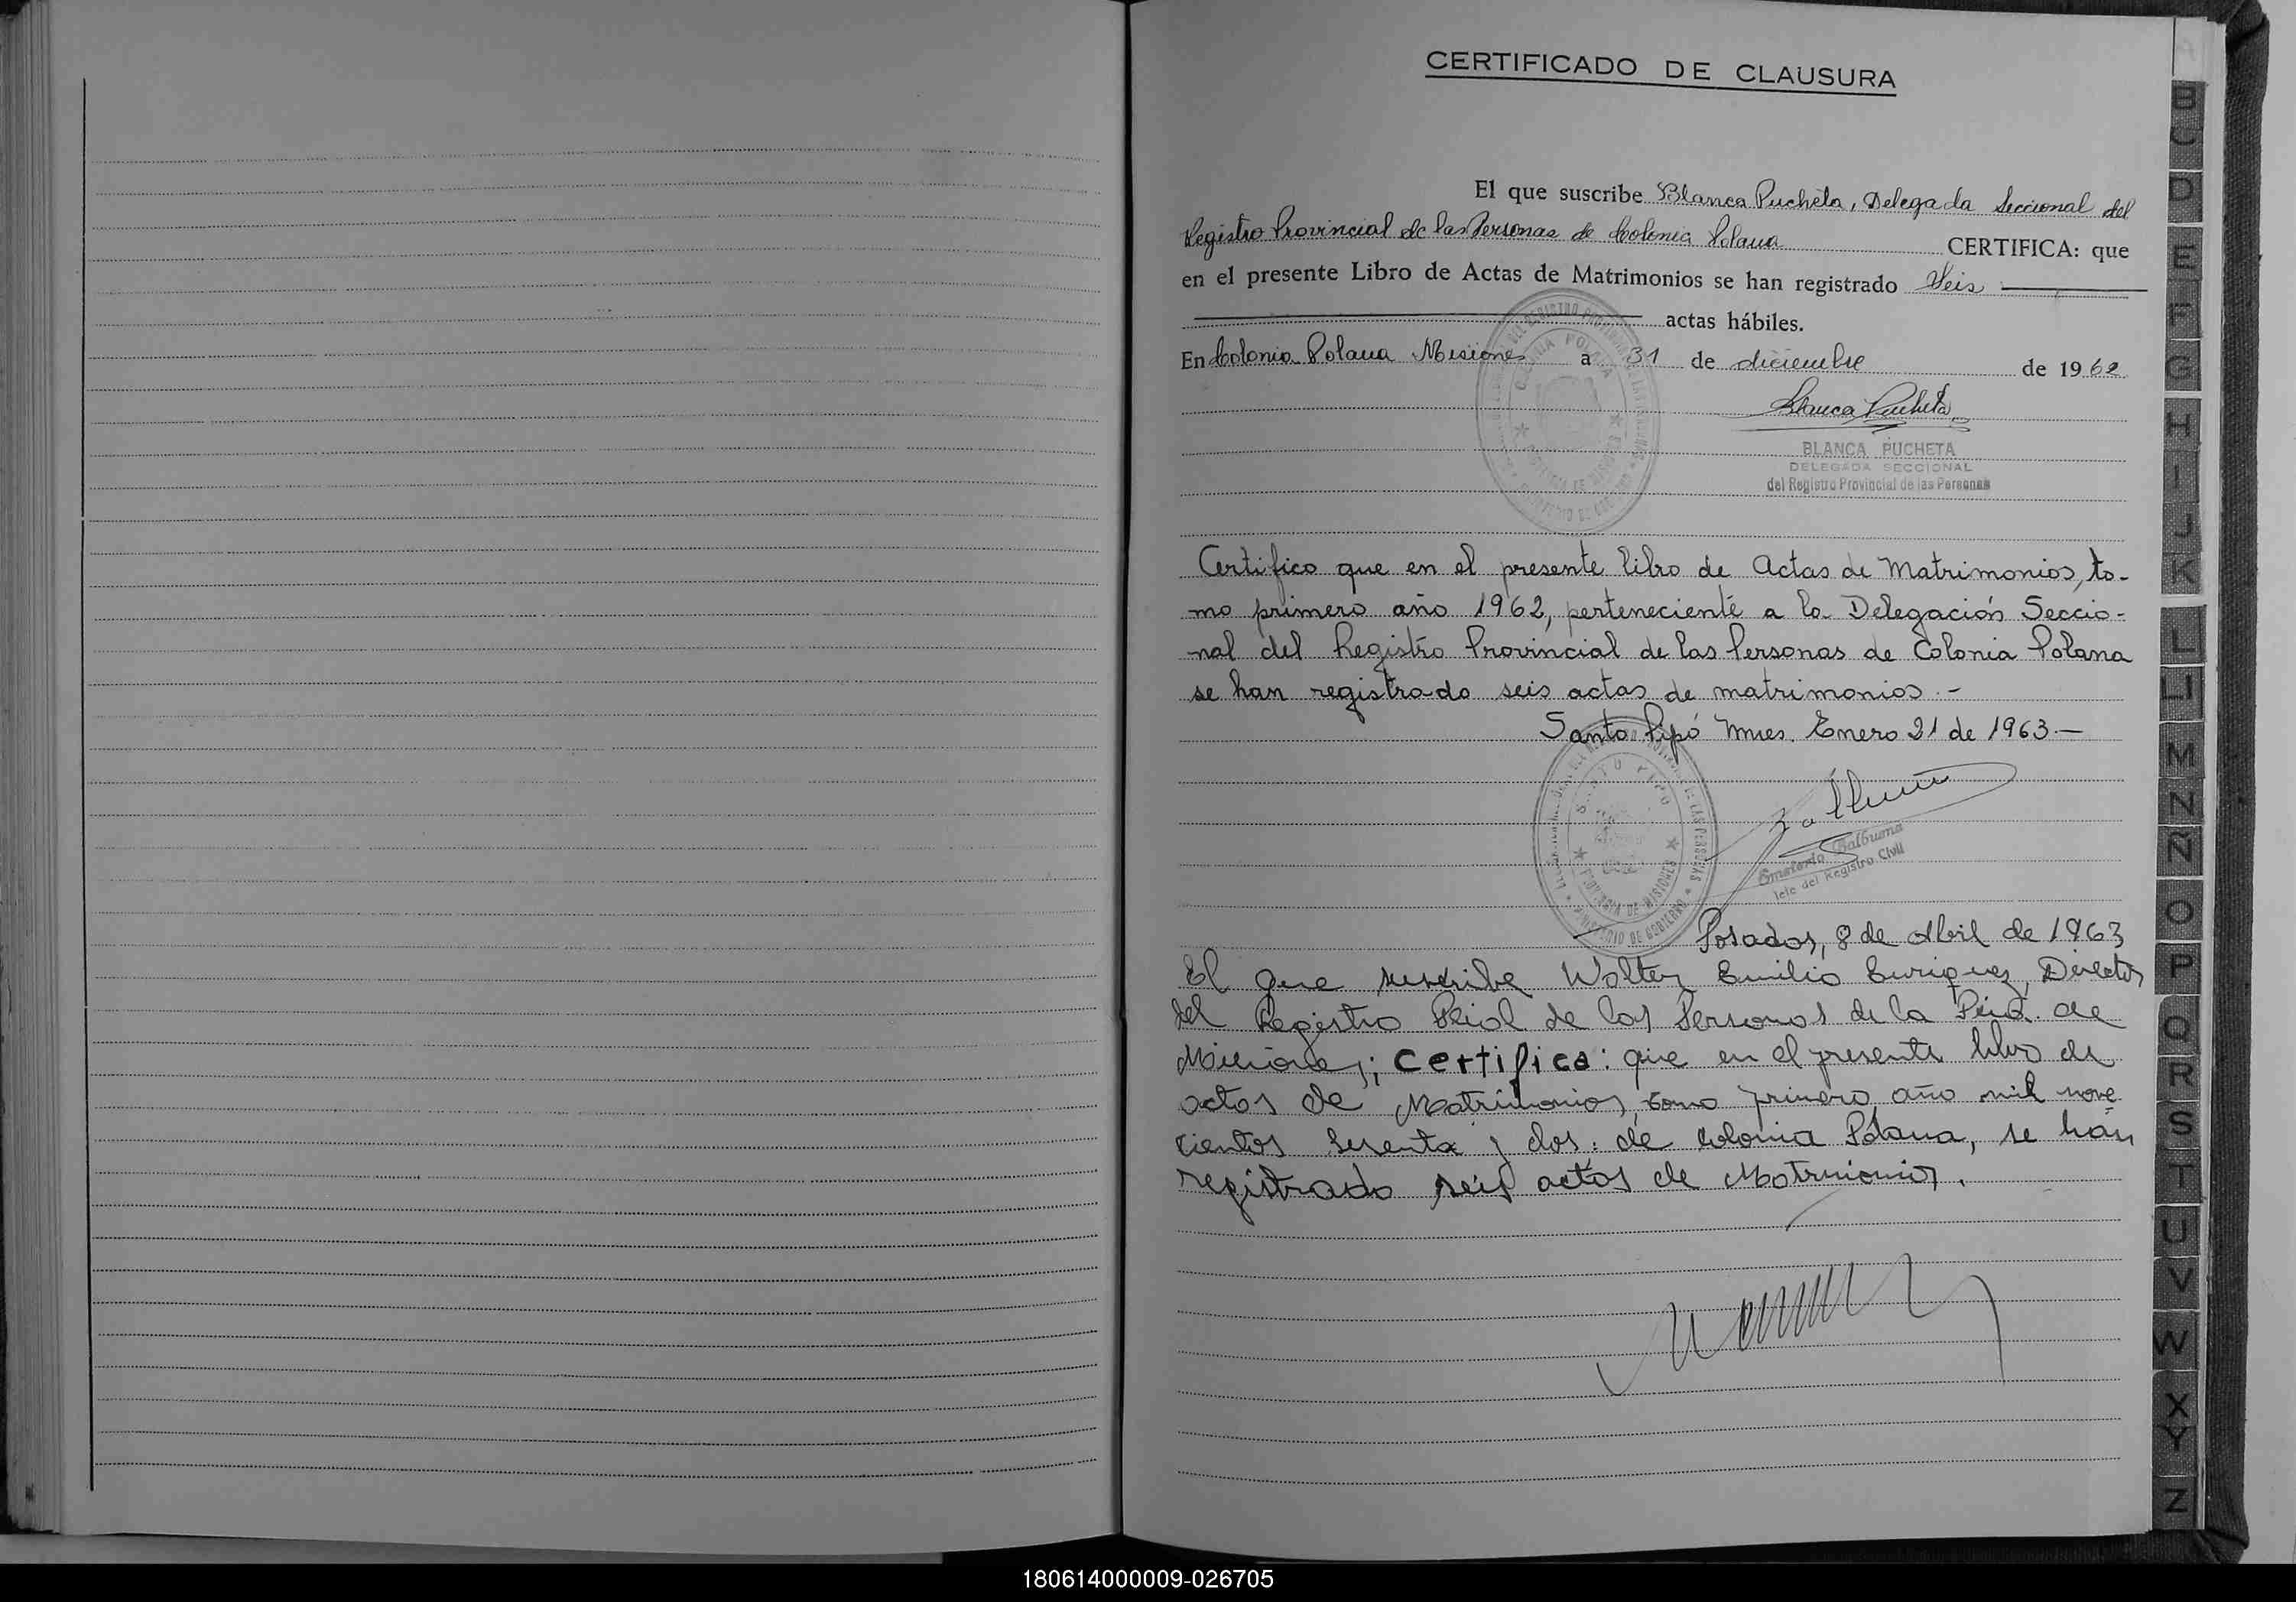 CERTIFICADO DE CLAUSURA
El que suscribe Blanca Pucheta, Delegada Seccional del
Registro Provincial de las Personas de Colonia Polana CERTIFICA: que
en el presente Libro de Actas de Matrimonios se han registrado Seis
actas hábiles.
En Colonia Polana Misiones a 31 de diciembre de 1962
Blanca Pucheta
BLANCA PUCHETA
DELEGADA SECCIONAL
del Registro Provincial de las Personas
Certifico que en el presente libro de Actas de Matrimonios, to-
mo primero año 1962, perteneciente a la Delegación Seccio-
nal del Registro Provincial de las Personas de Colonia Polana
se han registrado seis actas de matrimonios.-
Santo Pipó Mnes. Enero 21 de 1963.-
Balbuena
Jefe del Registro Civil
Posadas, 8 de Abril de 1963
El que suscribe Walter Emilio Enriquez, Director
del Registro Pcial de las Personas de la Pcia. de
Misiones; Certifica: que en el presente libro de
actas de Matrimonios, tomo primero año mil nove
cientos sesenta y dos: de Colonia Polana, se han
registrado seis actas de Matrimonios.
A
B
C
D
E
F
G
H
I
J
K
L
Ll
M
N
Ñ
O
P
Q
R
S
T
U
V
W
X
Y
Z
180614000009-026705